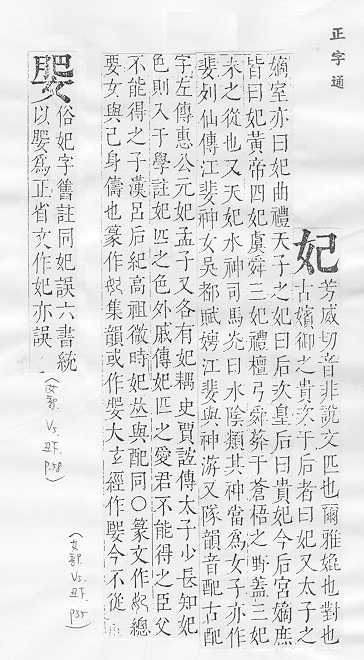 正字通
妃
芳威切音非說文匹也爾雅媲也對也
古嬪御之貴次于后者曰妃又太子之
嫡室亦曰妃曲禮天子之妃曰后次皇后曰貴妃今后宮嫡庶
皆曰妃黃帝四妃虞舜三妃禮檀弓舜葬于蒼梧之野蓋三妃
未之從也又天妃水神司馬光曰水陰類其神當為女子亦作
婓列仙傳江婓神女吳都賦娉江婓與神游又隊韻音配古配
字左傳惠公元妃孟子又各有妃耦史賈誼傳太子少長知妃
色則入于學註妃匹之色外戚傳妃匹之愛君不能得之臣父
不能得之子漢呂后紀高祖微時妃𠀤與配同○篆文作妃總
要女與己身儔也篆作妃集韻或作娶大玄經作㛃今不從
㛃
俗妃字舊註同妃誤六書統
以㛃為正省文作妃亦誤
(女部.
V5.
丑下.
P.58)
(女部.
V5.
丑下.
P35)